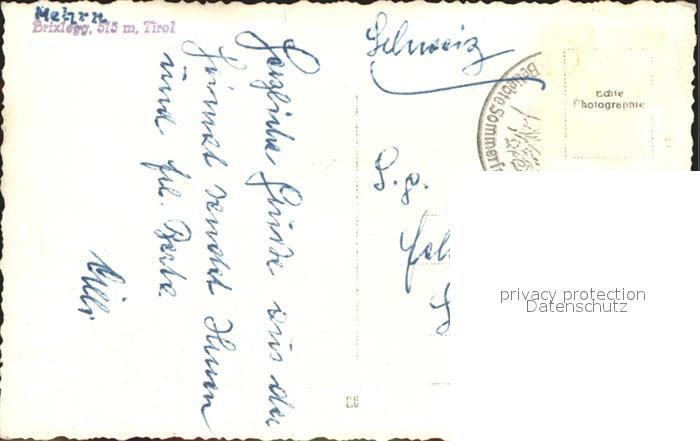 Mehrn
Brixlegg, 515 m, Tirol
Herzliche Grüße aus der
Heimat sendet Ihnen
und frl. Berta
Schweiz
Beliebte Sommerfr
Echte
Photographie
privacy protection
Datenschutz